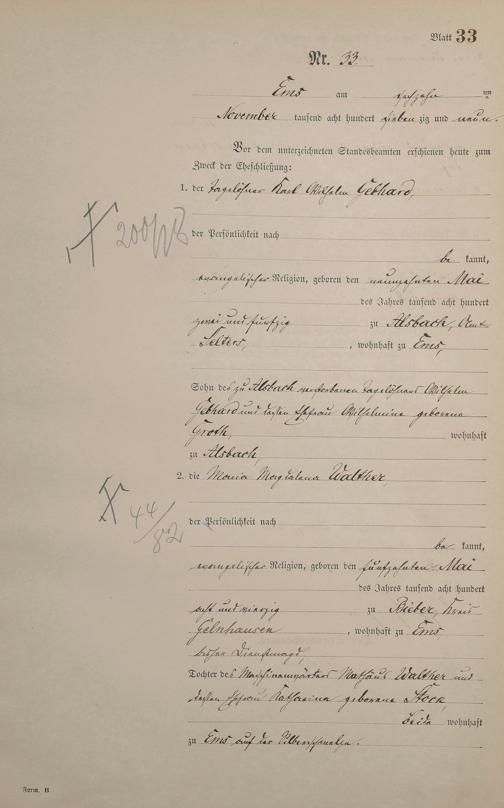 Blatt 33
Nr. 33.
Ems am sechzehn ten
November tausend acht hundert sieben zig und neun.
Vor dem unterzeichneten Standesbeamten erschienen heute zum
Zweck der Eheschließung:
1. der Tagelöhner Karl Wilhelm Gebhard,
der Persönlichkeit nach
be kannt,
evangelischer Religion, geboren den neunzehnten Mai
des Jahres tausend acht hundert
zwei und fünfzig zu Alsbach, Amt
Selters, wohnhaft zu Ems,
Sohn des zu Alsbach verstorbenen Tagelöhners Wilhelm
Gebhard und dessen Ehefrau Wilhelmine geborene
Groth, wohnhaft
zu Alsbach,
2. die Maria Magdalena Walther,
der Persönlichkeit nach
be kannt,
evangelischer Religion, geboren den fünfzehnten Mai
des Jahres tausend acht hundert
acht und vierzig zu Bieber, Kreis
Gelnhausen, wohnhaft zu Ems,
bisher Dienstmagd,
Tochter des Mathäus Walther und
dessen Ehefrau Katharina geborene Stock,
beide wohnhaft
zu Ems auf der Silberschmelze.
44/82
Form. B